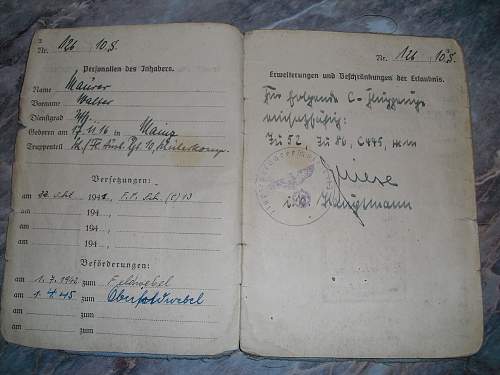 2
Nr. 126 10.S.
Personalien des Inhabers.
Name Maurer
Vorname Walter
Dienstgrad Uffz.
Geboren am 17.11.16 in Mainz
Truppenteil
Versetzungen:
am 194 F.F. Sch. (C) 13
am 194 ,
am 194 ,
am 194 ,
Beförderungen:
am 1.7.1942 zum Feldwebel
am 1.4.45 zum Oberfeldwebel
am zum
am zum
Nr. 126 10.S.
Erweiterungen und Beschränkungen der Erlaubnis.
Für folgende C-Flugzeuge
Ju 52, Ju 86, C 445,
Hauptmann